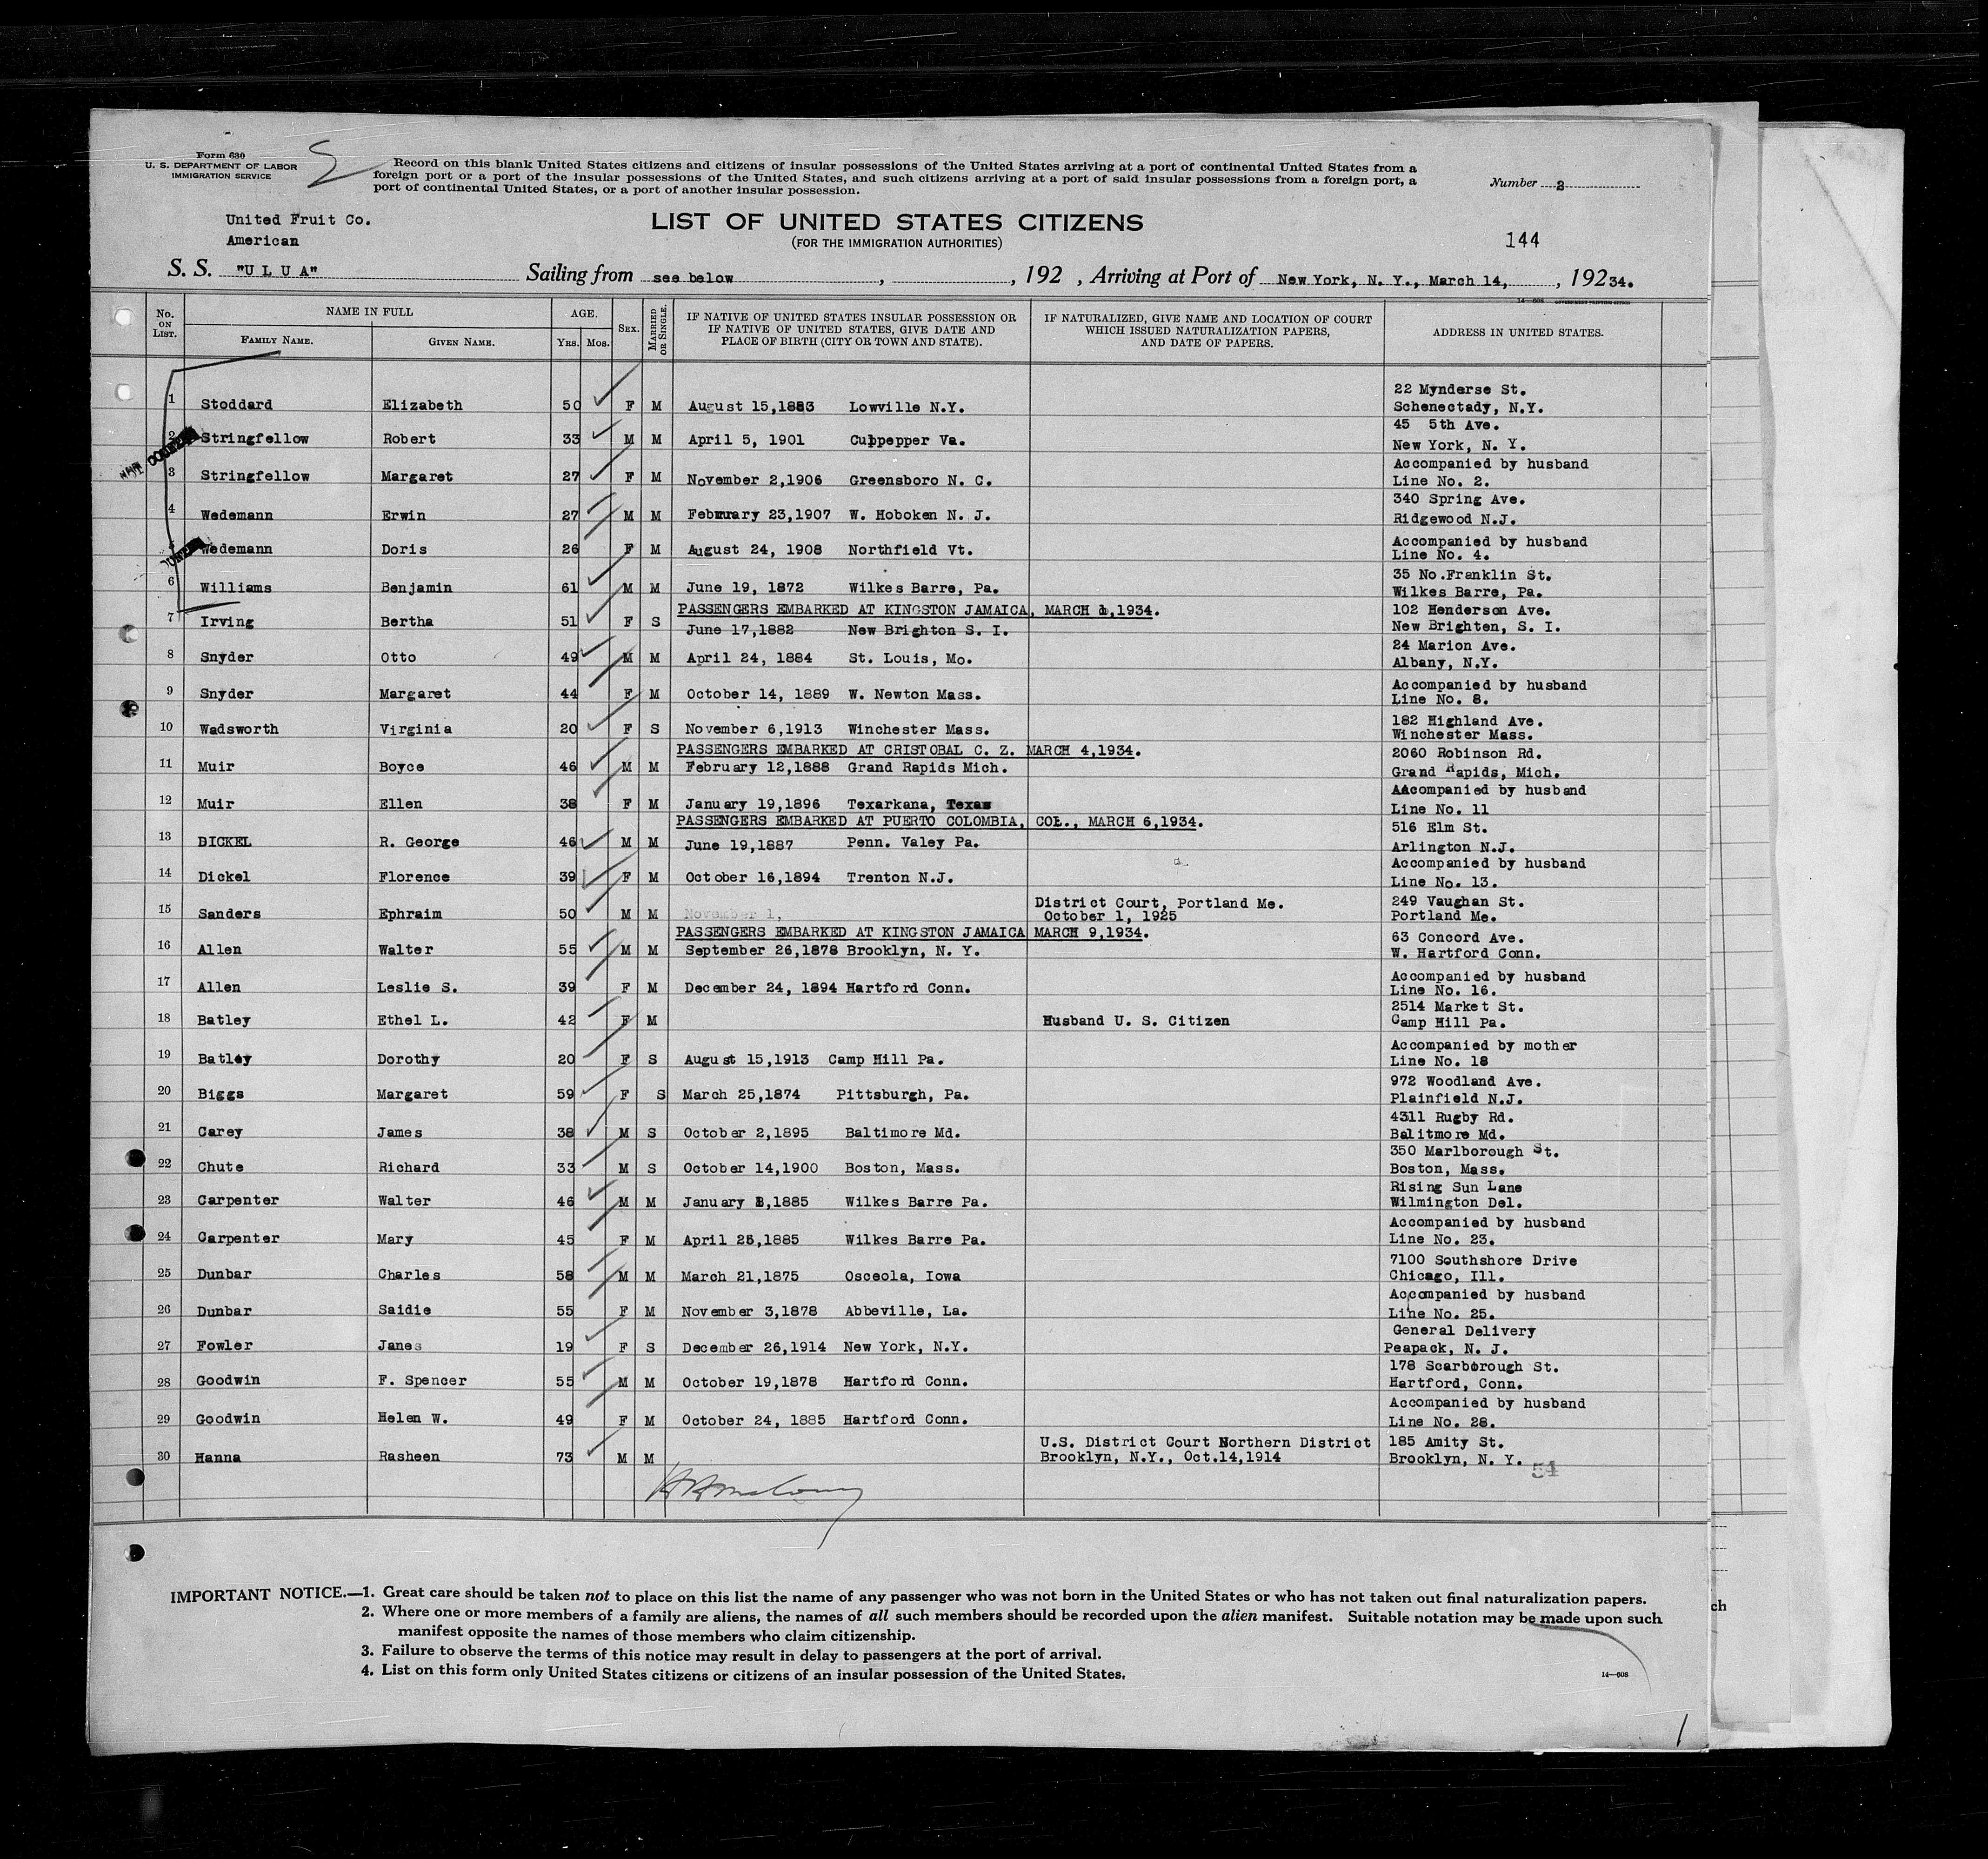 Form 630
U. S. DEPARTMENT OF LABOR
IMMIGRATION SERVICE
Record on this blank United States citizens and citizens of insular possessions of the United States arriving at a port of continental United States from a
foreign port or a port of the insular possessions of the United States, and such citizens arriving at a port of said insular possessions from a foreign port, a
port of continental United States, or a port of another insular possession.
Number 2
United Fruit Co.
American
LIST OF UNITED STATES CITIZENS
(FOR THE IMMIGRATION AUTHORITIES)
144
S. S. "U L U A" Sailing from see below , , 192 , Arriving at Port of New York, N. Y., March 14, , 19234.
14-608 GOVERNMENT PRINTING OFFICE
No. ON LIST. NAME IN FULL FAMILY NAME. GIVEN NAME. AGE. YRS. MOS. SEX. MARRIED OR SINGLE. IF NATIVE OF UNITED STATES INSULAR POSSESSION OR IF NATIVE OF UNITED STATES, GIVE DATE AND PLACE OF BIRTH (CITY OR TOWN AND STATE). IF NATURALIZED, GIVE NAME AND LOCATION OF COURT WHICH ISSUED NATURALIZATION PAPERS, AND DATE OF PAPERS. ADDRESS IN UNITED STATES.
1 Stoddard Elizabeth 50 F M August 15,1883 Lowville N.Y. 22 Mynderse St. Schenectady, N.Y.
2 Stringfellow Robert 33 M M April 5, 1901 Culppepper Va. 45 5th Ave. New York, N. Y.
3 Stringfellow Margaret 27 F M November 2,1906 Greensboro N. C. Accompanied by husband Line No. 2.
4 Wedemann Erwin 27 M M February 23,1907 W. Hoboken N. J. 340 Spring Ave. Ridgewood N.J.
5 Wedemann Doris 26 F M August 24, 1908 Northfield Vt. Accompanied by husband Line No. 4.
6 Williams Benjamin 61 M M June 19, 1872 Wilkes Barre, Pa. 35 No.Franklin St. Wilkes Barre, Pa.
PASSENGERS EMBARKED AT KINGSTON JAMAICA, MARCH 1,1934.
7 Irving Bertha 51 F S June 17,1882 New Brighton S. I. 102 Henderson Ave. New Brighten, S. I.
8 Snyder Otto 49 M M April 24, 1884 St. Louis, Mo. 24 Marion Ave. Albany, N.Y.
9 Snyder Margaret 44 F M October 14, 1889 W. Newton Mass. Accompanied by husband Line No. 8.
10 Wadsworth Virginia 20 F S November 6,1913 Winchester Mass. 182 Highland Ave. Winchester Mass.
PASSENGERS EMBARKED AT CRISTOBAL C. Z. MARCH 4,1934.
11 Muir Boyce 46 M M February 12,1888 Grand Rapids Mich. 2060 Robinson Rd. Grand Rapids, Mich.
12 Muir Ellen 38 F M January 19,1896 Texarkana, Texas AAcompanied by husband Line No. 11
PASSENGERS EMBARKED AT PUERTO COLOMBIA, COL., MARCH 6,1934.
13 BICKEL R. George 46 M M June 19,1887 Penn. Valey Pa. 516 Elm St. Arlington N.J.
14 Dickel Florence 39 F M October 16,1894 Trenton N.J. Accompanied by husband Line No. 13.
15 Sanders Ephraim 50 M M November 1, District Court, Portland Me. October 1, 1925 249 Vaughan St. Portland Me.
PASSENGERS EMBARKED AT KINGSTON JAMAICA MARCH 9,1934.
16 Allen Walter 55 M M September 26,1878 Brooklyn, N. Y. 63 Concord Ave. W. Hartford Conn.
17 Allen Leslie S. 39 F M December 24, 1894 Hartford Conn. Accompanied by husband Line No. 16.
18 Batley Ethel L. 42 F M Husband U. S. Citizen 2514 Market St. Camp Hill Pa.
19 Batley Dorothy 20 F S August 15,1913 Camp Hill Pa. Accompanied by mother Line No. 18
20 Biggs Margaret 59 F S March 25,1874 Pittsburgh, Pa. 972 Woodland Ave. Plainfield N.J.
21 Carey James 38 M S October 2,1895 Baltimore Md. 4311 Rugby Rd. Balitmore Md.
22 Chute Richard 33 M S October 14,1900 Boston, Mass. 350 Marlborough St. Boston, Mass.
23 Carpenter Walter 46 M M January 8,1885 Wilkes Barre Pa. Rising Sun Lane Wilmington Del.
24 Carpenter Mary 45 F M April 25,1885 Wilkes Barre Pa. Accompanied by husband Line No. 23.
25 Dunbar Charles 58 M M March 21,1875 Osceola, Iowa 7100 Southshore Drive Chicago, Ill.
26 Dunbar Saidie 55 F M November 3,1878 Abbeville, La. Accompanied by husband Line No. 25.
27 Fowler Janes 19 F S December 26,1914 New York, N.Y. General Delivery Peapack, N. J.
28 Goodwin F. Spencer 55 M M October 19,1878 Hartford Conn. 178 Scarborough St. Hartford, Conn.
29 Goodwin Helen W. 49 F M October 24, 1885 Hartford Conn. Accompanied by husband Line No. 28.
30 Hanna Rasheen 73 M M U.S. District Court Northern District Brooklyn, N.Y., Oct.14,1914 185 Amity St. Brooklyn, N. Y.
54
IMPORTANT NOTICE.—1. Great care should be taken not to place on this list the name of any passenger who was not born in the United States or who has not taken out final naturalization papers.
2. Where one or more members of a family are aliens, the names of all such members should be recorded upon the alien manifest. Suitable notation may be made upon such
manifest opposite the names of those members who claim citizenship.
3. Failure to observe the terms of this notice may result in delay to passengers at the port of arrival.
4. List on this form only United States citizens or citizens of an insular possession of the United States.
14—608
ch
1